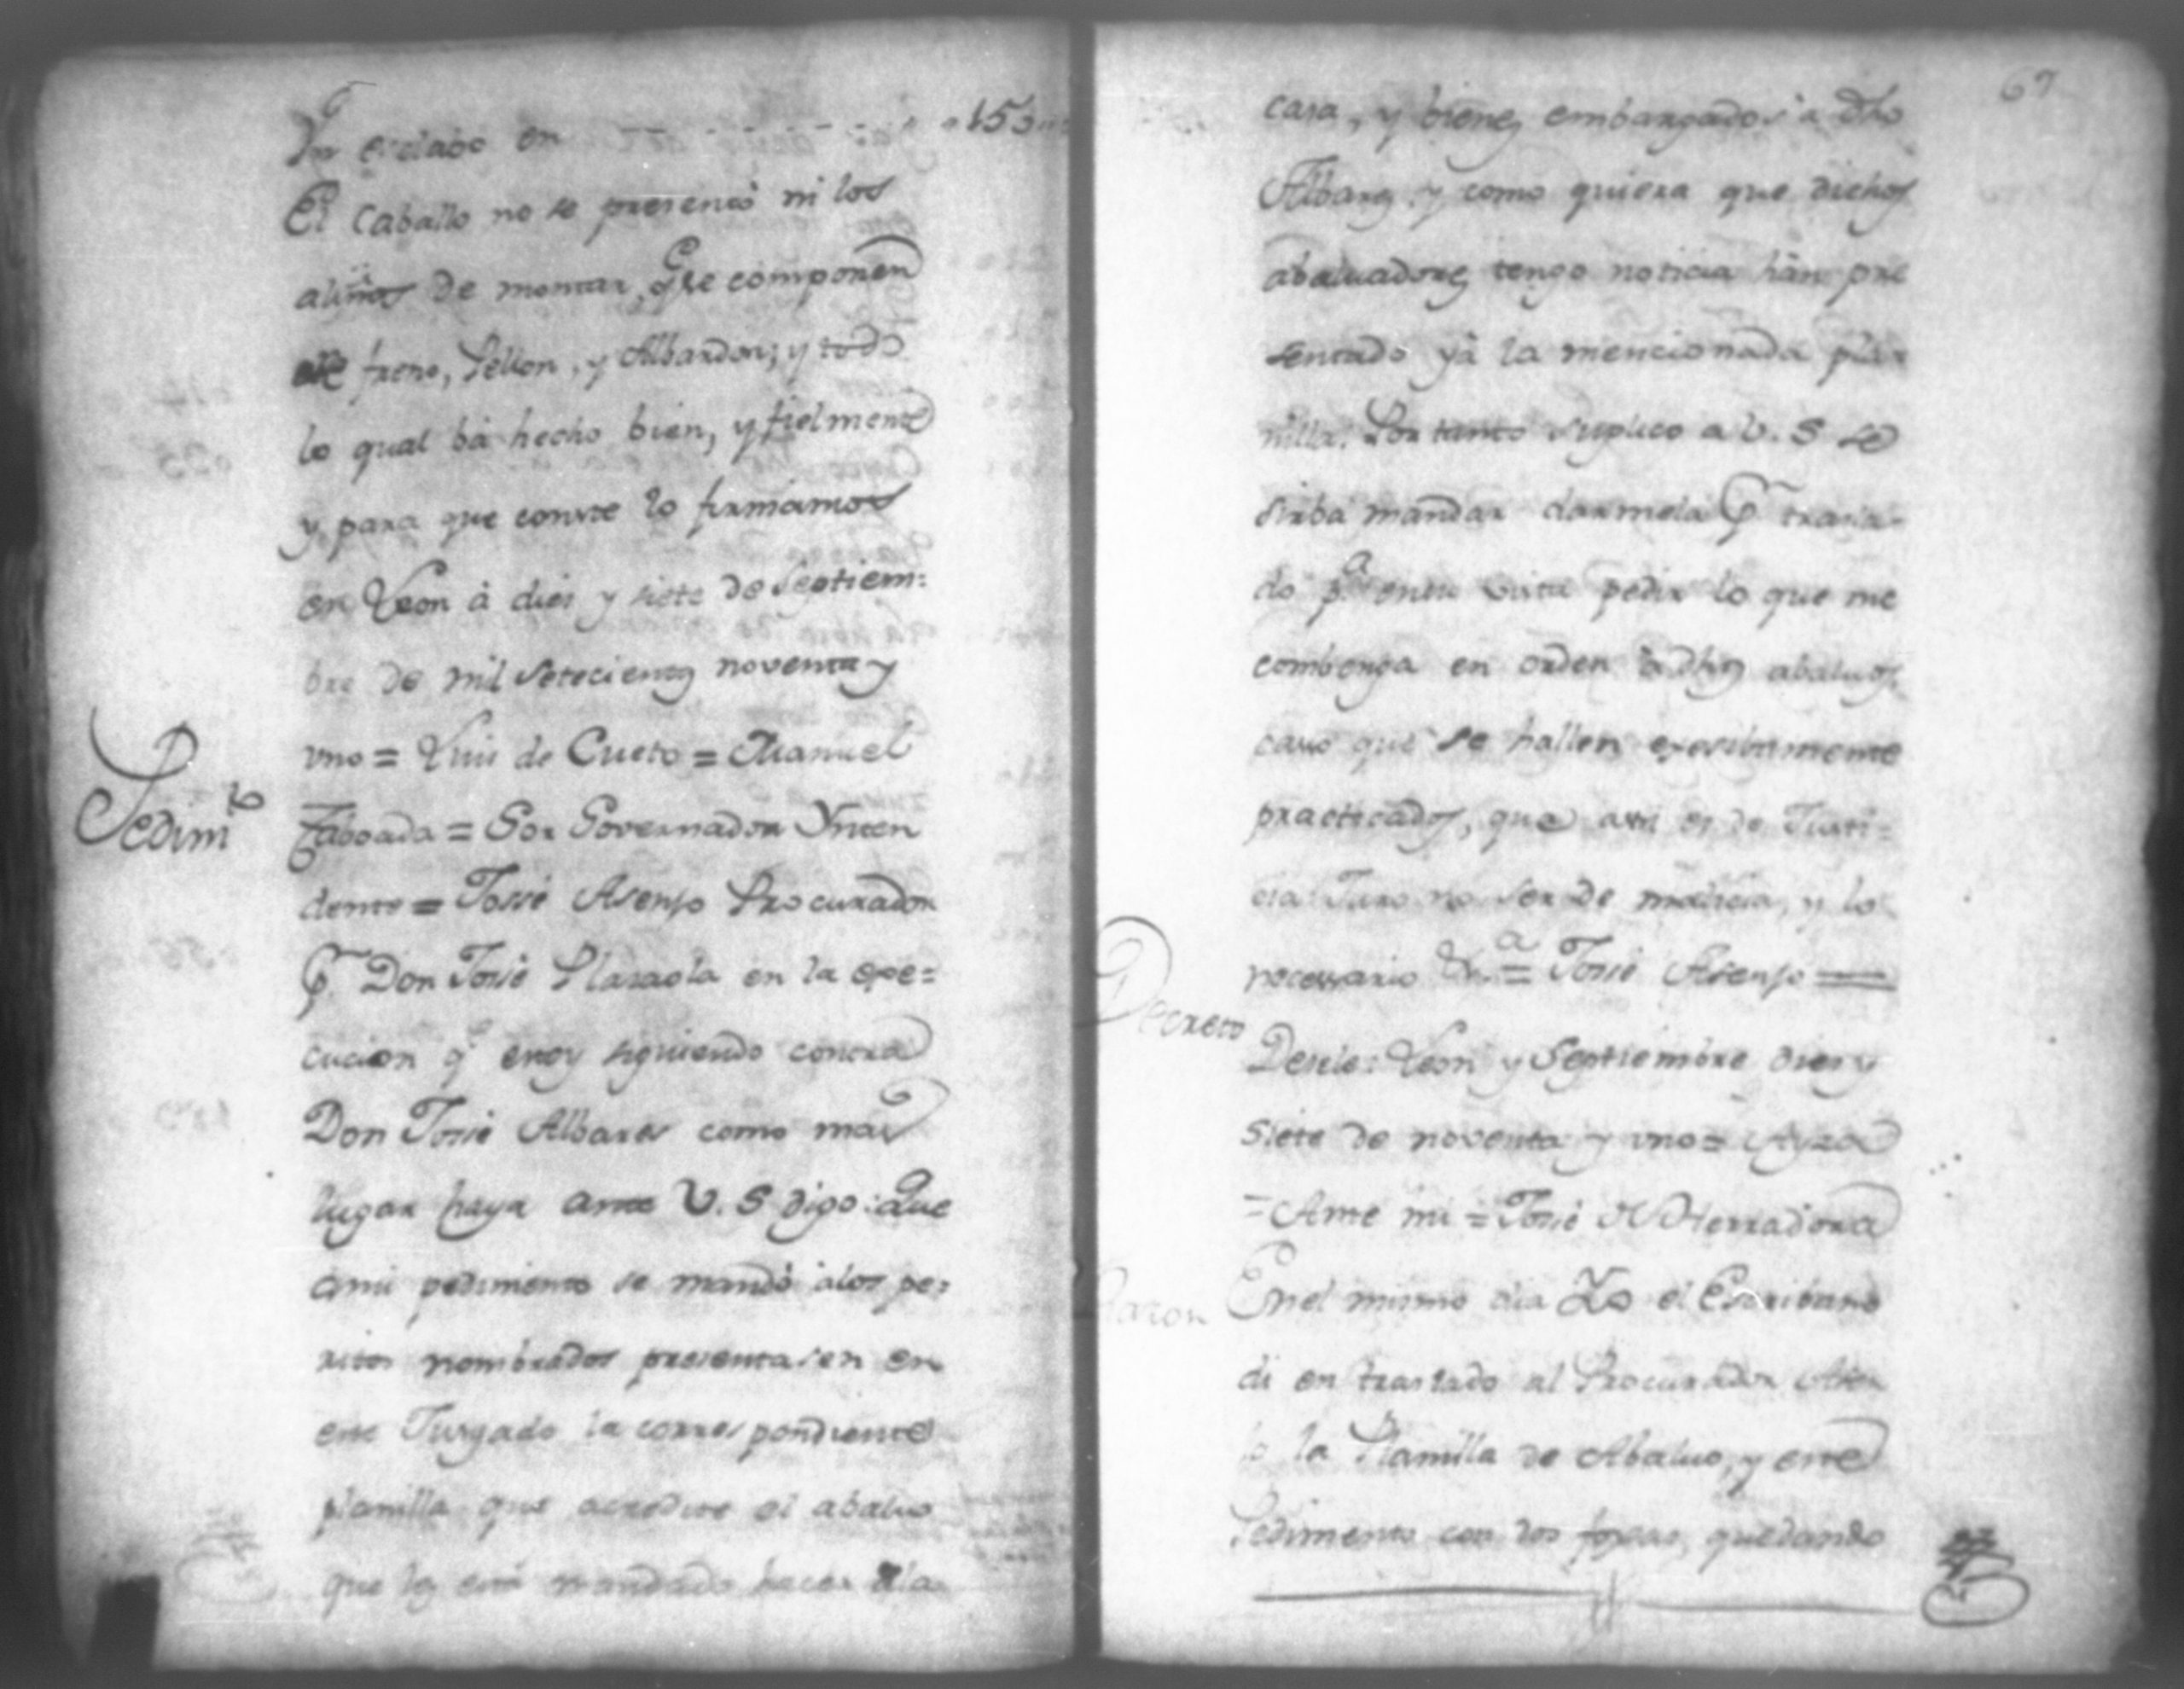 Un esclabo en 153
El caballo no se presentó ni los
aliños de montar, q.e se componen
de freno, Pellon, y Albardon; y todo
lo qual bá hecho bien, y fielmente
y para que conste lo firmamos
en Leon á dies y siete de Septiem=
bre de mil setecientos noventa y
Pedim.to
uno = Luis de Cueto = Manuel
Taboada = Sor Governador Ynten
dente = Josse Asenjo Procurador
P. Don Josse Plazaola en la exe=
cucion q.e estoy siguiendo contra
Don Josse Albares como mas
lugar haya ante V. S digo: Que
ami pedimento se mandó alos pe=
ritos nombrados presentasen en
este Jusgado la correspondiente
planilla que acredite el abaluo
que les está mandado hacer ala
67
casa, y bienes embargados a dho
Albares y como quiera que dichos
abaluadores tengo noticia hán pre
sentado yá la mencionada pla
nilla. Por tanto suplico a V. S se
sirba mandar darmela P. trasla-
do p.a en su vista pedir lo que me
combenga en orden á dhos abaluos,
caso que se hallen exesibamente
practicados, que asi es de Justi=
cia Juro no ser de malicia, y lo
necessario &.a = Josse Asenjo =
Decreto
Desele: Leon y Septiembre dies y
siete de noventa y uno =
= Ante mi = Josse Herradora
Razon
En el mismo dia Yo el Escribano
di en traslado al Procurador Asen
jo la Planilla de Abaluo, y este
Pedimento con dos foxas, quedando